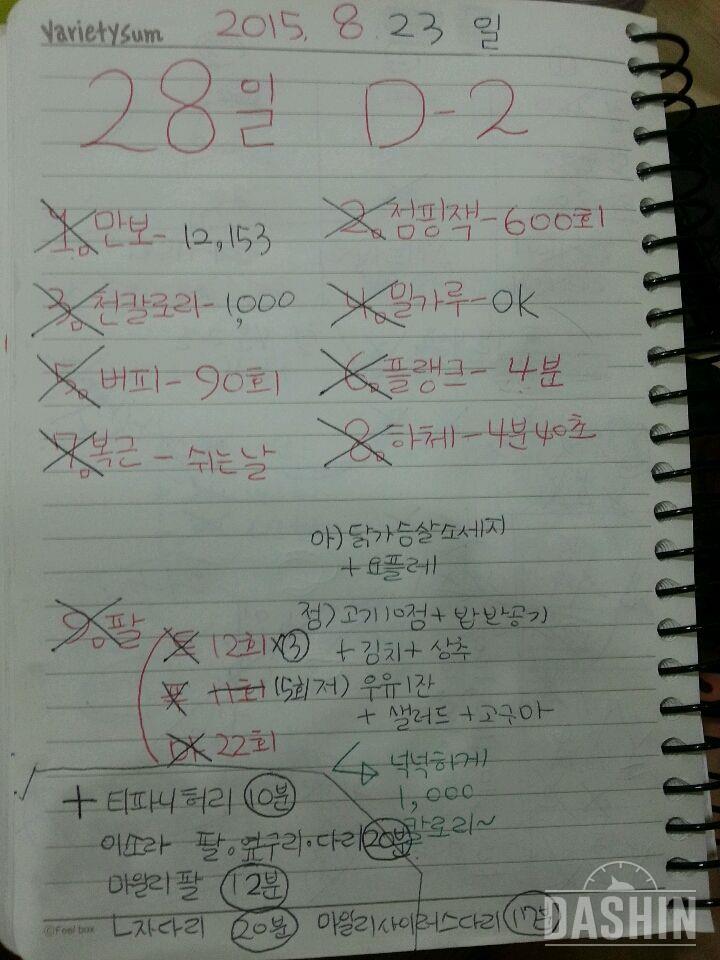 Varietysum 2015. 8. 23 일
28일 D-2
1. 만보- 12,153 2. 점핑잭-600회
3. 천칼로리-1,000 4. 밀가루-OK
5. 버피-90회 6. 플랭크- 4분
7. 복근 - 쉬는날 8. 하체-4분40초
아) 닭가슴살소세지
+ 요플레
9. 팔 점) 고기10점+ 밥반공기
12회×3 + 김치+ 상추
11회 (5회 저) 우유1잔
+ 샐러드 + 고구마
22회
넉넉하게
1,000
칼로리~
+ 티파니허리 10분
이소라 팔.옆구리.다리 20분
마일리팔 12분
L자다리 20분 마일리사이러스다리 17분
©Feel box
DASHIN